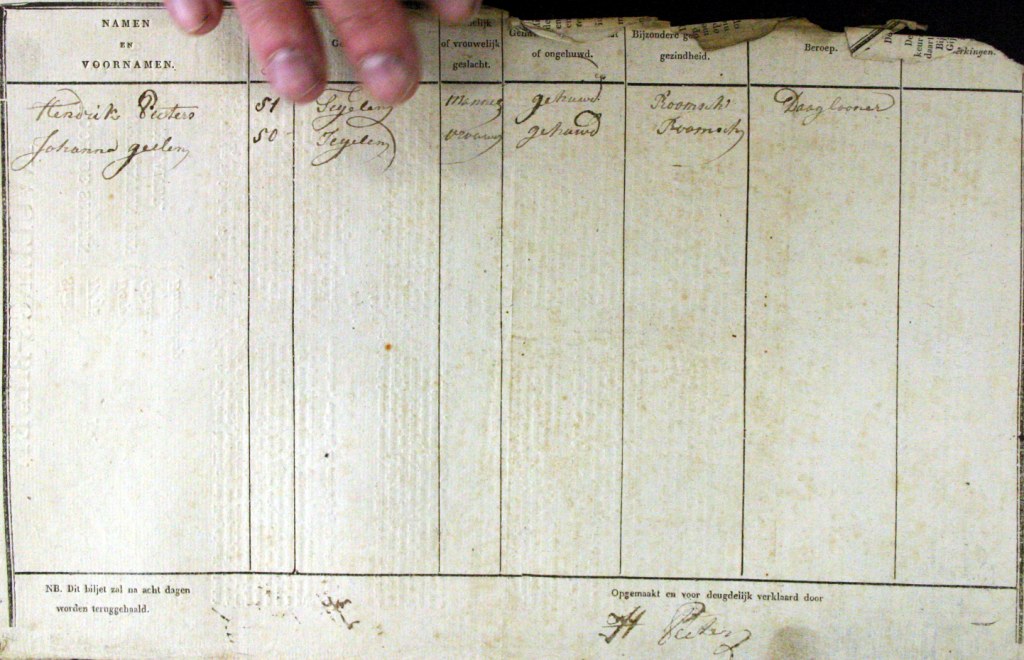 NAMEN
EN
VOORNAMEN.
of vrouwelijk
geslacht.
of ongehuwd.
Bijzondere
gezindheid.
Beroep.
Hendrik Pieters 51 Teijelen gehuwd Roomsch Daaglooner
Johanna geelen 50 Teijelen vrouw gehuwd Roomsch
NB. Dit biljet zal na acht dagen
worden teruggehaald.
Opgemaakt en voor deugdelijk verklaard door
H Pieters